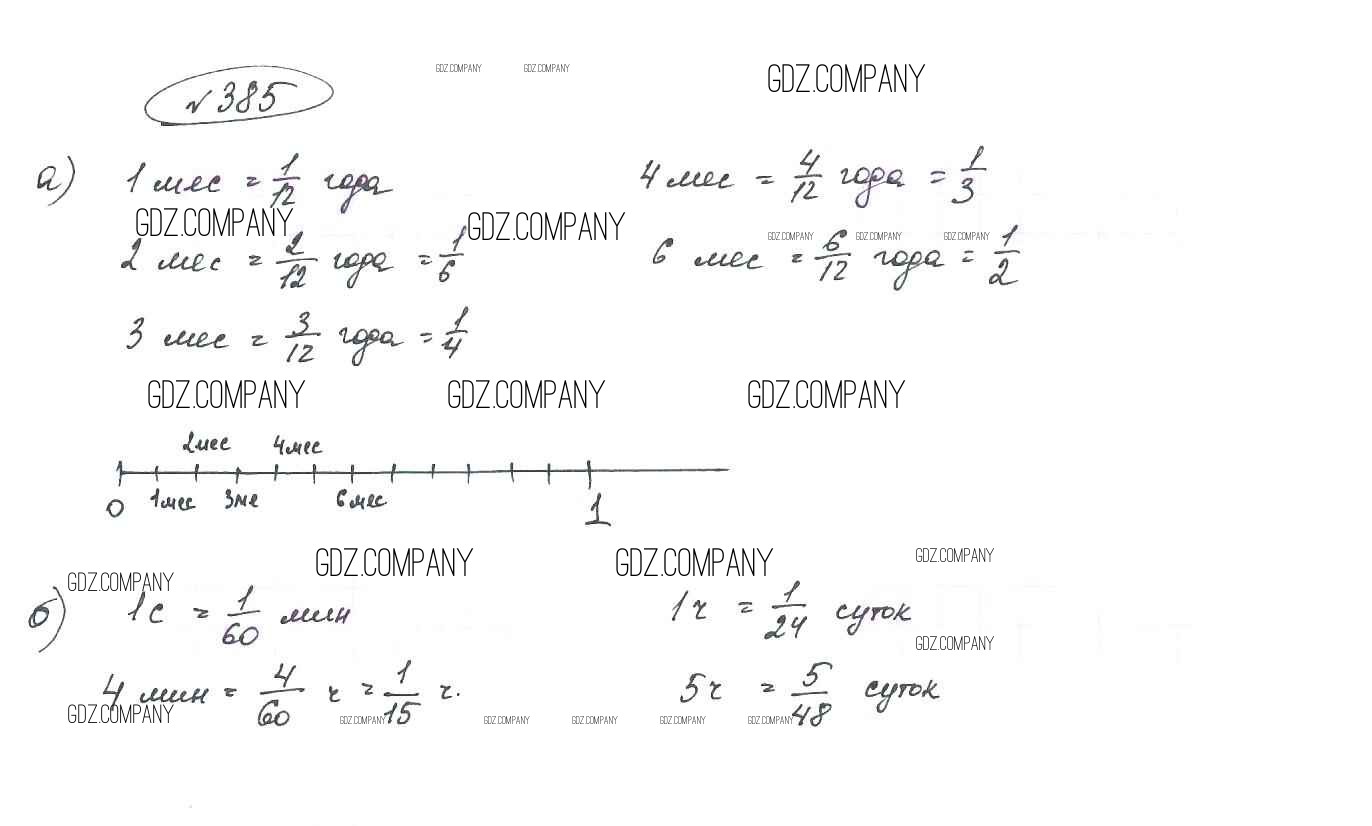 GDZ.COMPANY GDZ.COMPANY GDZ.COMPANY
№385
а) 1 мес = 1/12 года 4 мес = 4/12 года = 1/3
GDZ.COMPANY GDZ.COMPANY GDZ.COMPANY GDZ.COMPANY GDZ.COMPANY
2 мес = 2/12 года = 1/6 6 мес = 6/12 года = 1/2
3 мес = 3/12 года = 1/4
GDZ.COMPANY GDZ.COMPANY GDZ.COMPANY
2мес 4мес
0 1мес 3ме 6мес 1
GDZ.COMPANY GDZ.COMPANY GDZ.COMPANY
GDZ.COMPANY
б) 1с = 1/60 мин 1ч = 1/24 суток
GDZ.COMPANY
4 мин = 4/60 ч = 1/15 ч. 5ч = 5/48 суток
GDZ.COMPANY GDZ.COMPANY GDZ.COMPANY GDZ.COMPANY GDZ.COMPANY GDZ.COMPANY